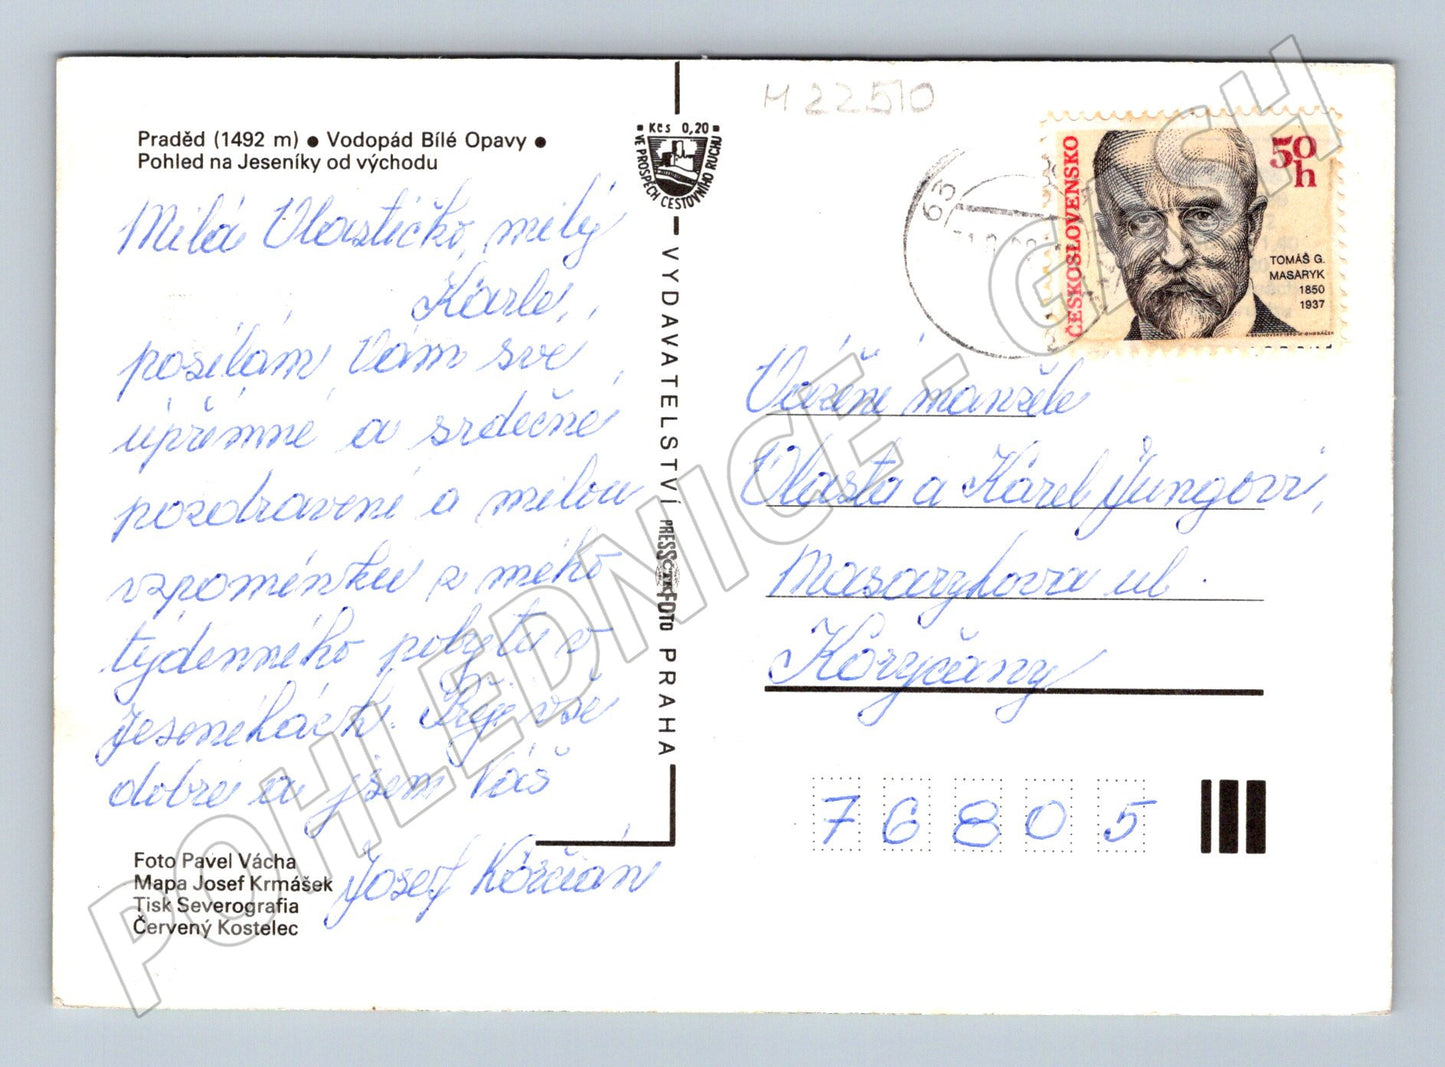 Praděd (1492 m) ● Vodopád Bílé Opavy ●
Pohled na Jeseníky od východu
Milá Vlastičko, milý
Karle,
posílám Vám své
upřímné a srdečné
pozdravení a milou
vzpomínku z mého
týdenního pobytu v
Jeseníkách. Přeji vše
dobré a jsem Váš
Josef Korčián
Foto Pavel Vácha
Mapa Josef Krmášek
Tisk Severografia
Červený Kostelec
Kčs 0,20
VE PROSPĚCH CESTOVNÍHO RUCHU
VYDAVATELSTVÍ PRESSFOTO PRAHA
ČTK
M 22510
63
ČESKOSLOVENSKO
50
h
TOMÁŠ G.
MASARYK
1850
1937
Vážení manželé
Vlasta a Karel Jungovi,
Masarykova ul.
Koryčany
76805
POHLEDNICE - GASH